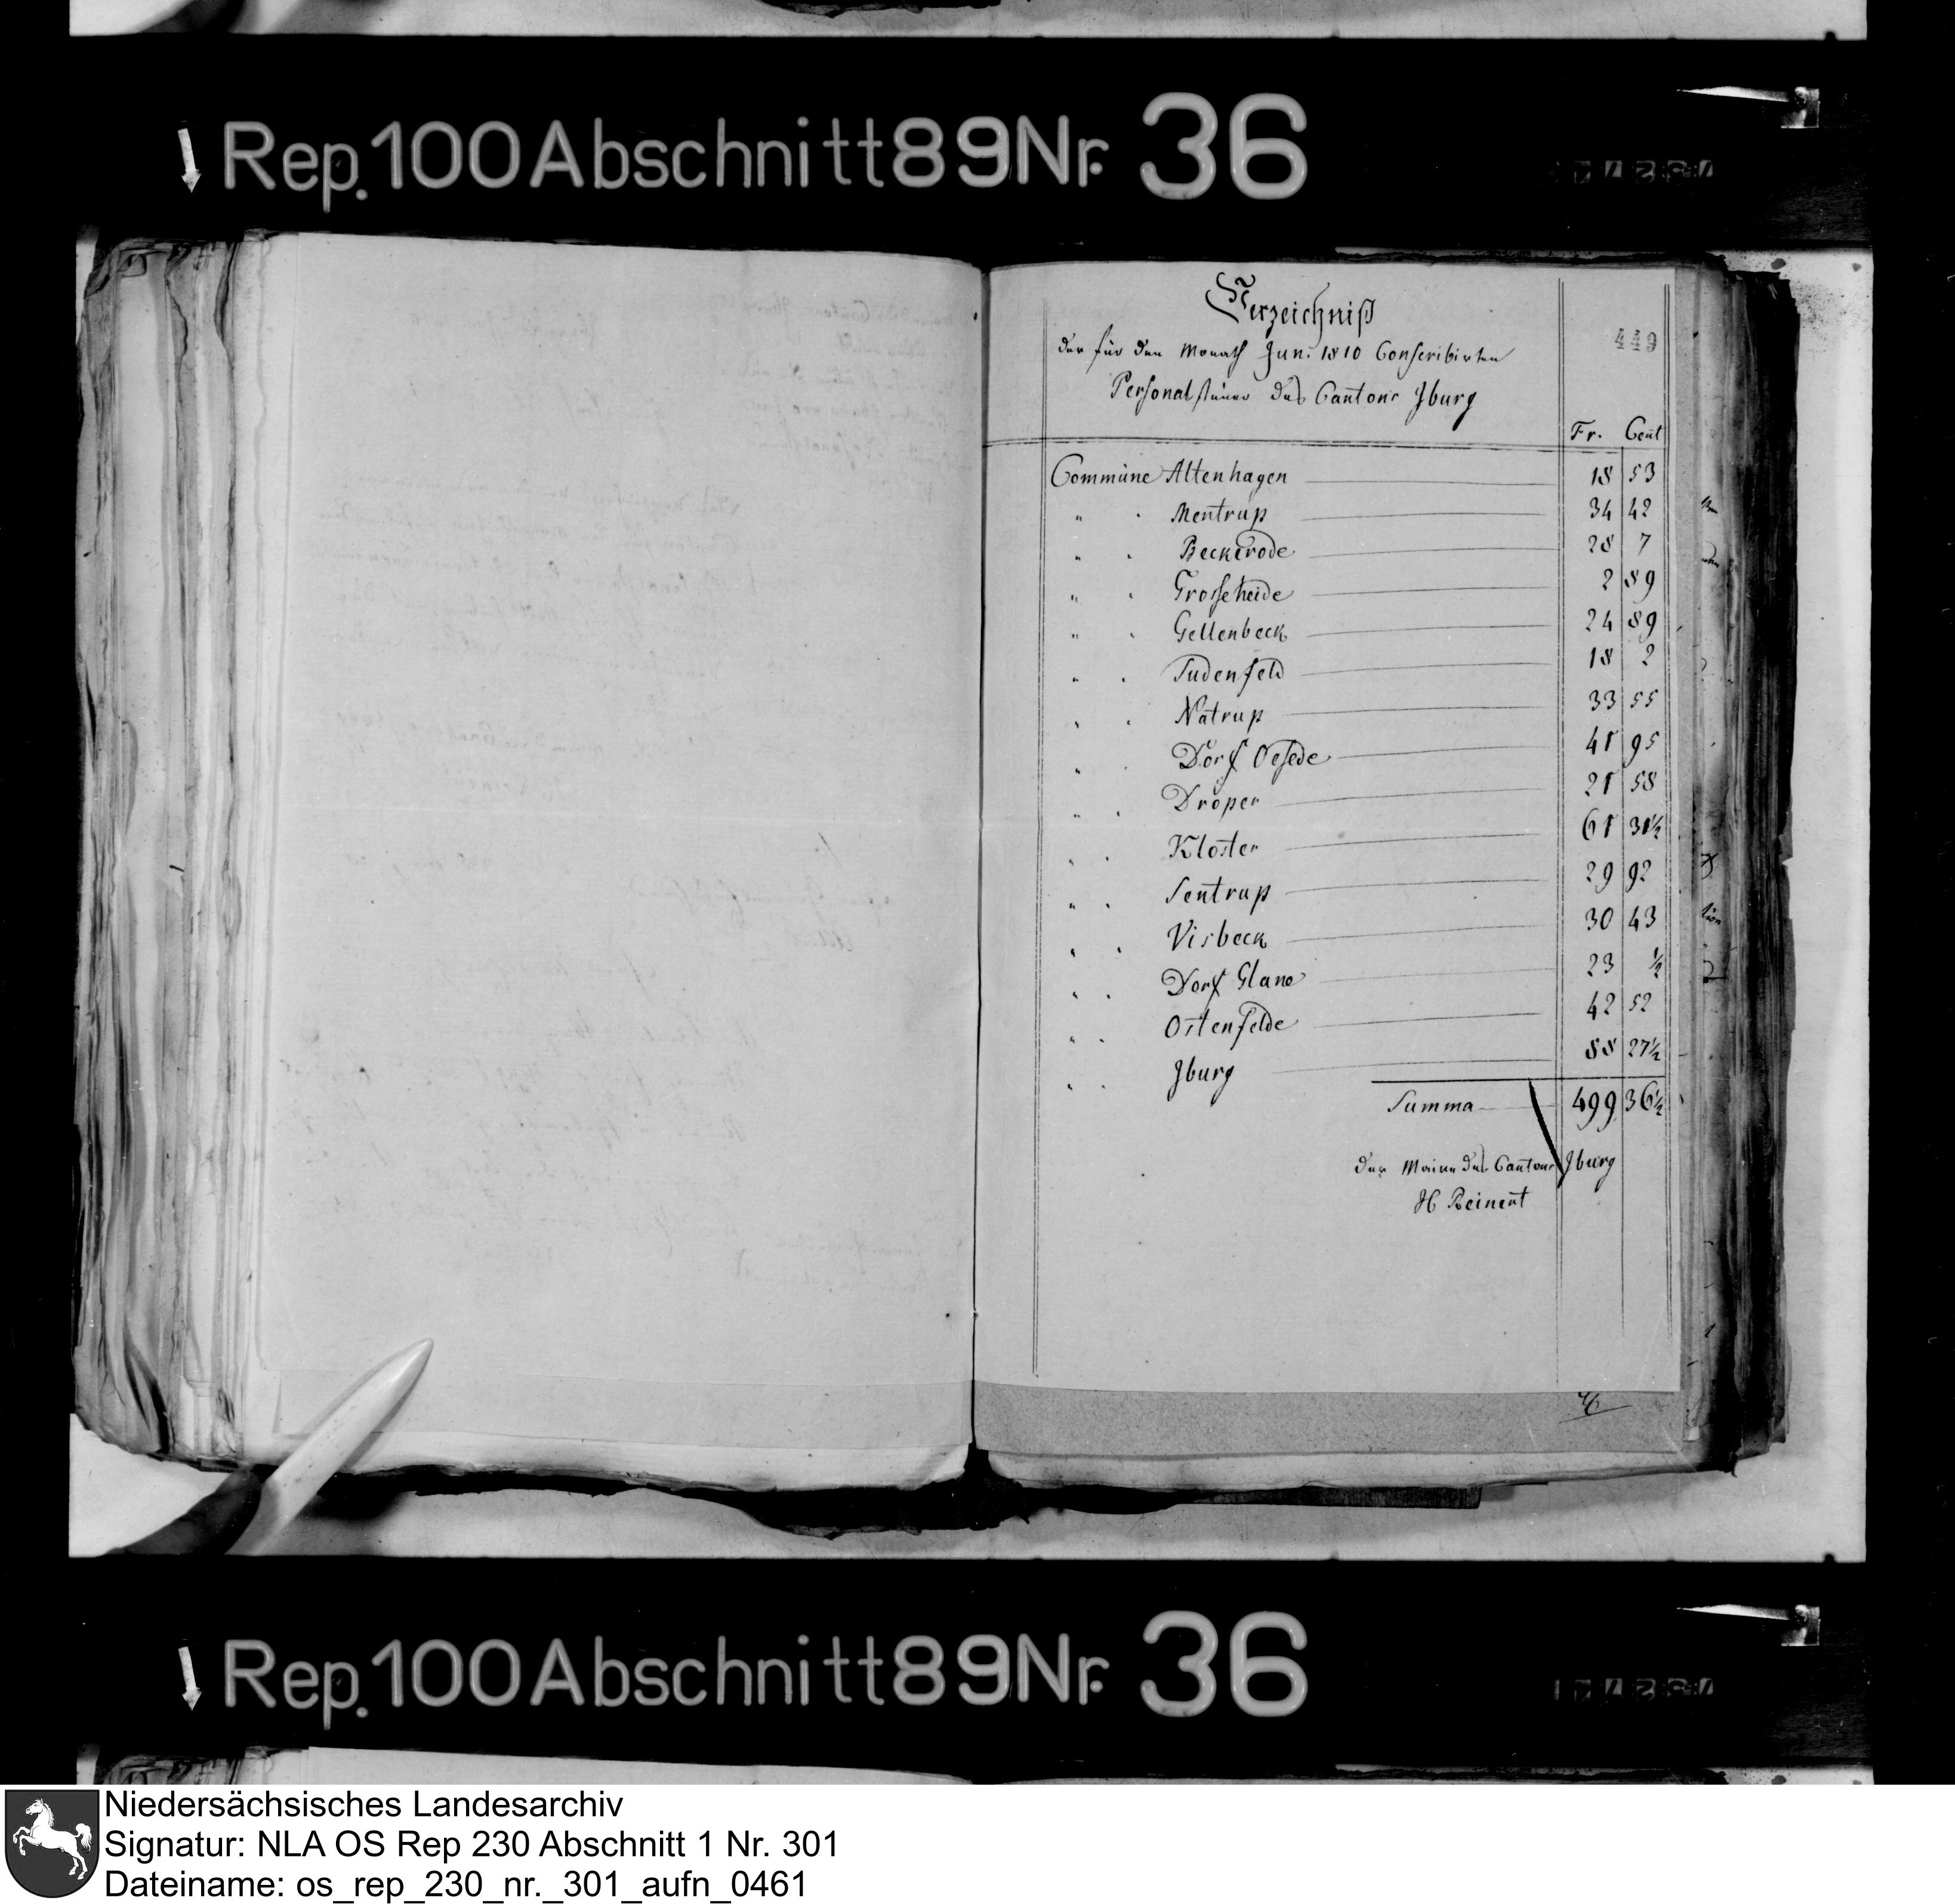 Rep.100 Abschnitt 89 Nr. 36
449
Verzeichniß
der für den Monath Jun. 1810 Conscribirten
Personalsteuer des Cantons Jburg
Fr. Cent
Commüne Altenhagen 18 53
" " Mentrup 34 42
" " Beckerode 28 7
" " Grosseheide 2 89
" " Gellenbeck 24 89
" " Sudenfeld 18 2
" " Natrup 33 55
" " Dorf Oesede 41 95
" " Dröper 21 58
" " Kloster 61 31½
" " Sentrup 29 92
" " Visbeck 30 43
" " Dorf Glane 23 ½
" " Ostenfelde 42 52
" " Jburg 88 27½
Summa 499 36½
Der Maire des Cantons Jburg
H Reinert
Rep.100 Abschnitt 89 Nr. 36
Niedersächsisches Landesarchiv
Signatur: NLA OS Rep 230 Abschnitt 1 Nr. 301
Dateiname: os_rep_230_nr._301_aufn_0461